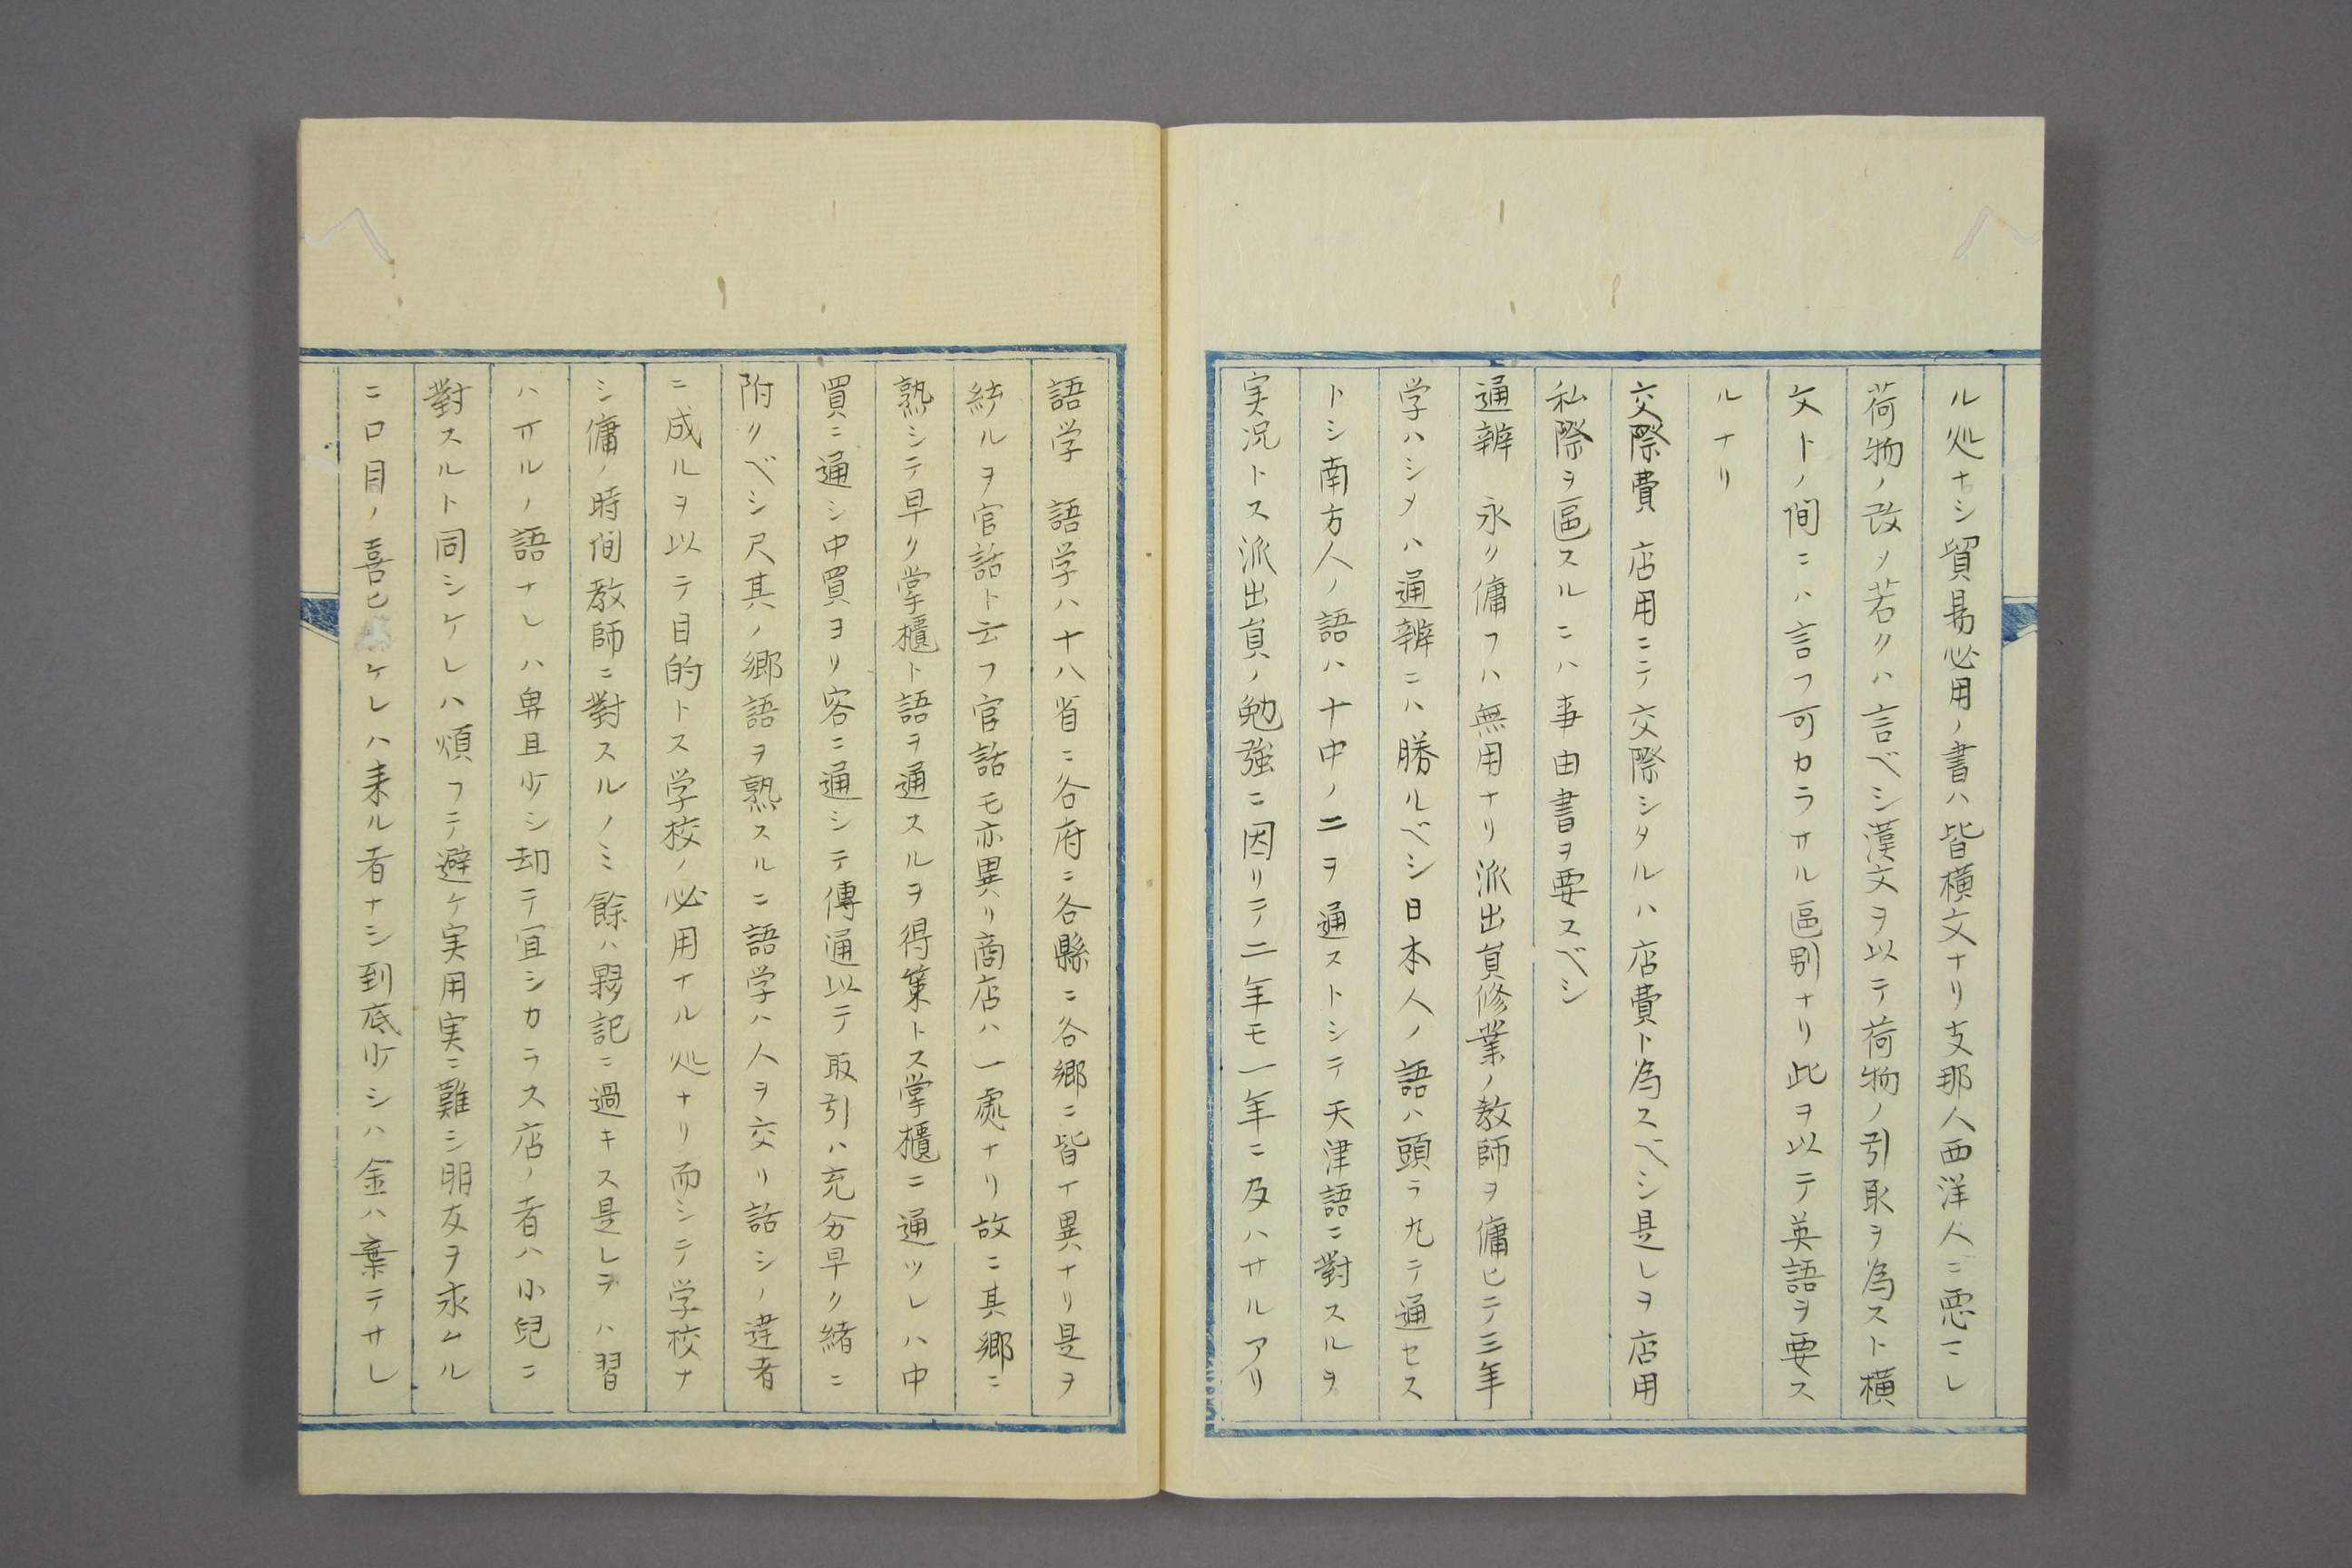 ル処ナシ貿易必用ノ書ハ皆横文ナリ支那人西洋人ニ悪マレ
荷物ノ改メ若クハ言ベシ漢文ヲ以テ荷物ノ引取ヲ為スト横
文トノ間ニハ言フ可カラサル區別ナリ此ヲ以テ英語ヲ要ス
ルナリ
交際費 店用ニテ交際シタルハ店費ト為スベシ是レヲ店用
私際ヲ區スルニハ事由書ヲ要スベシ
通辨 永ク傭フハ無用ナリ派出員修業ノ教師ヲ傭ヒテ三年
学ハシメハ通辨ニハ勝ルベシ日本人ノ語ハ頭ラ九テ通セス
トシ南方人ノ語ハ十中ノ二ヲ通ストシテ天津語ニ對スルヲ
実况トス派出員ノ勉強ニ因リテ二年モ一年ニ及ハサルアリ
語学 語学ハ十八省ニ各府ニ各縣ニ各郷ニ皆イ異ナリ是ヲ
統ルヲ官話ト云フ官話モ亦異リ商店ハ一處ナリ故ニ其郷ニ
熟シテ早ク掌櫃ト語ヲ通スルヲ得策トス掌櫃ニ通ツレハ中
買ニ通シ中買ヨリ客ニ通シテ傳通以テ取引ハ充分早ク緒ニ
附クベシ尺其ノ郷語ヲ熟スルニ語学ハ人ヲ交リ話シノ達者
ニ成ルヲ以テ目的トス学校ノ必用ナル処ナリ而シテ学校ナ
シ傭ノ時間教師ニ對スルノミ餘ハ夥記ニ過キス是レヲハ習
ハサルノ語ナレハ鼻且少シ却テ宜シカラス店ノ者ハ小兒ニ
對スルト同シケレハ煩フテ避ケ実用実ニ難シ朋友ヲ求ムル
ニ口目ノ喜ヒケレハ来ル者ナシ到底少シハ金ハ棄テサレ